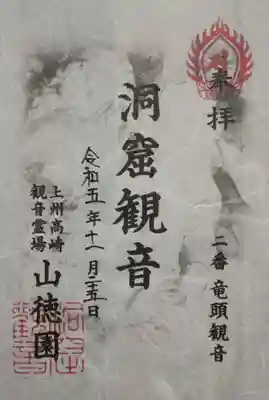 奉拝
二番 竜頭観音
洞窟観音
令和五年十一月二十五日
上州高崎
観音霊場
山徳園